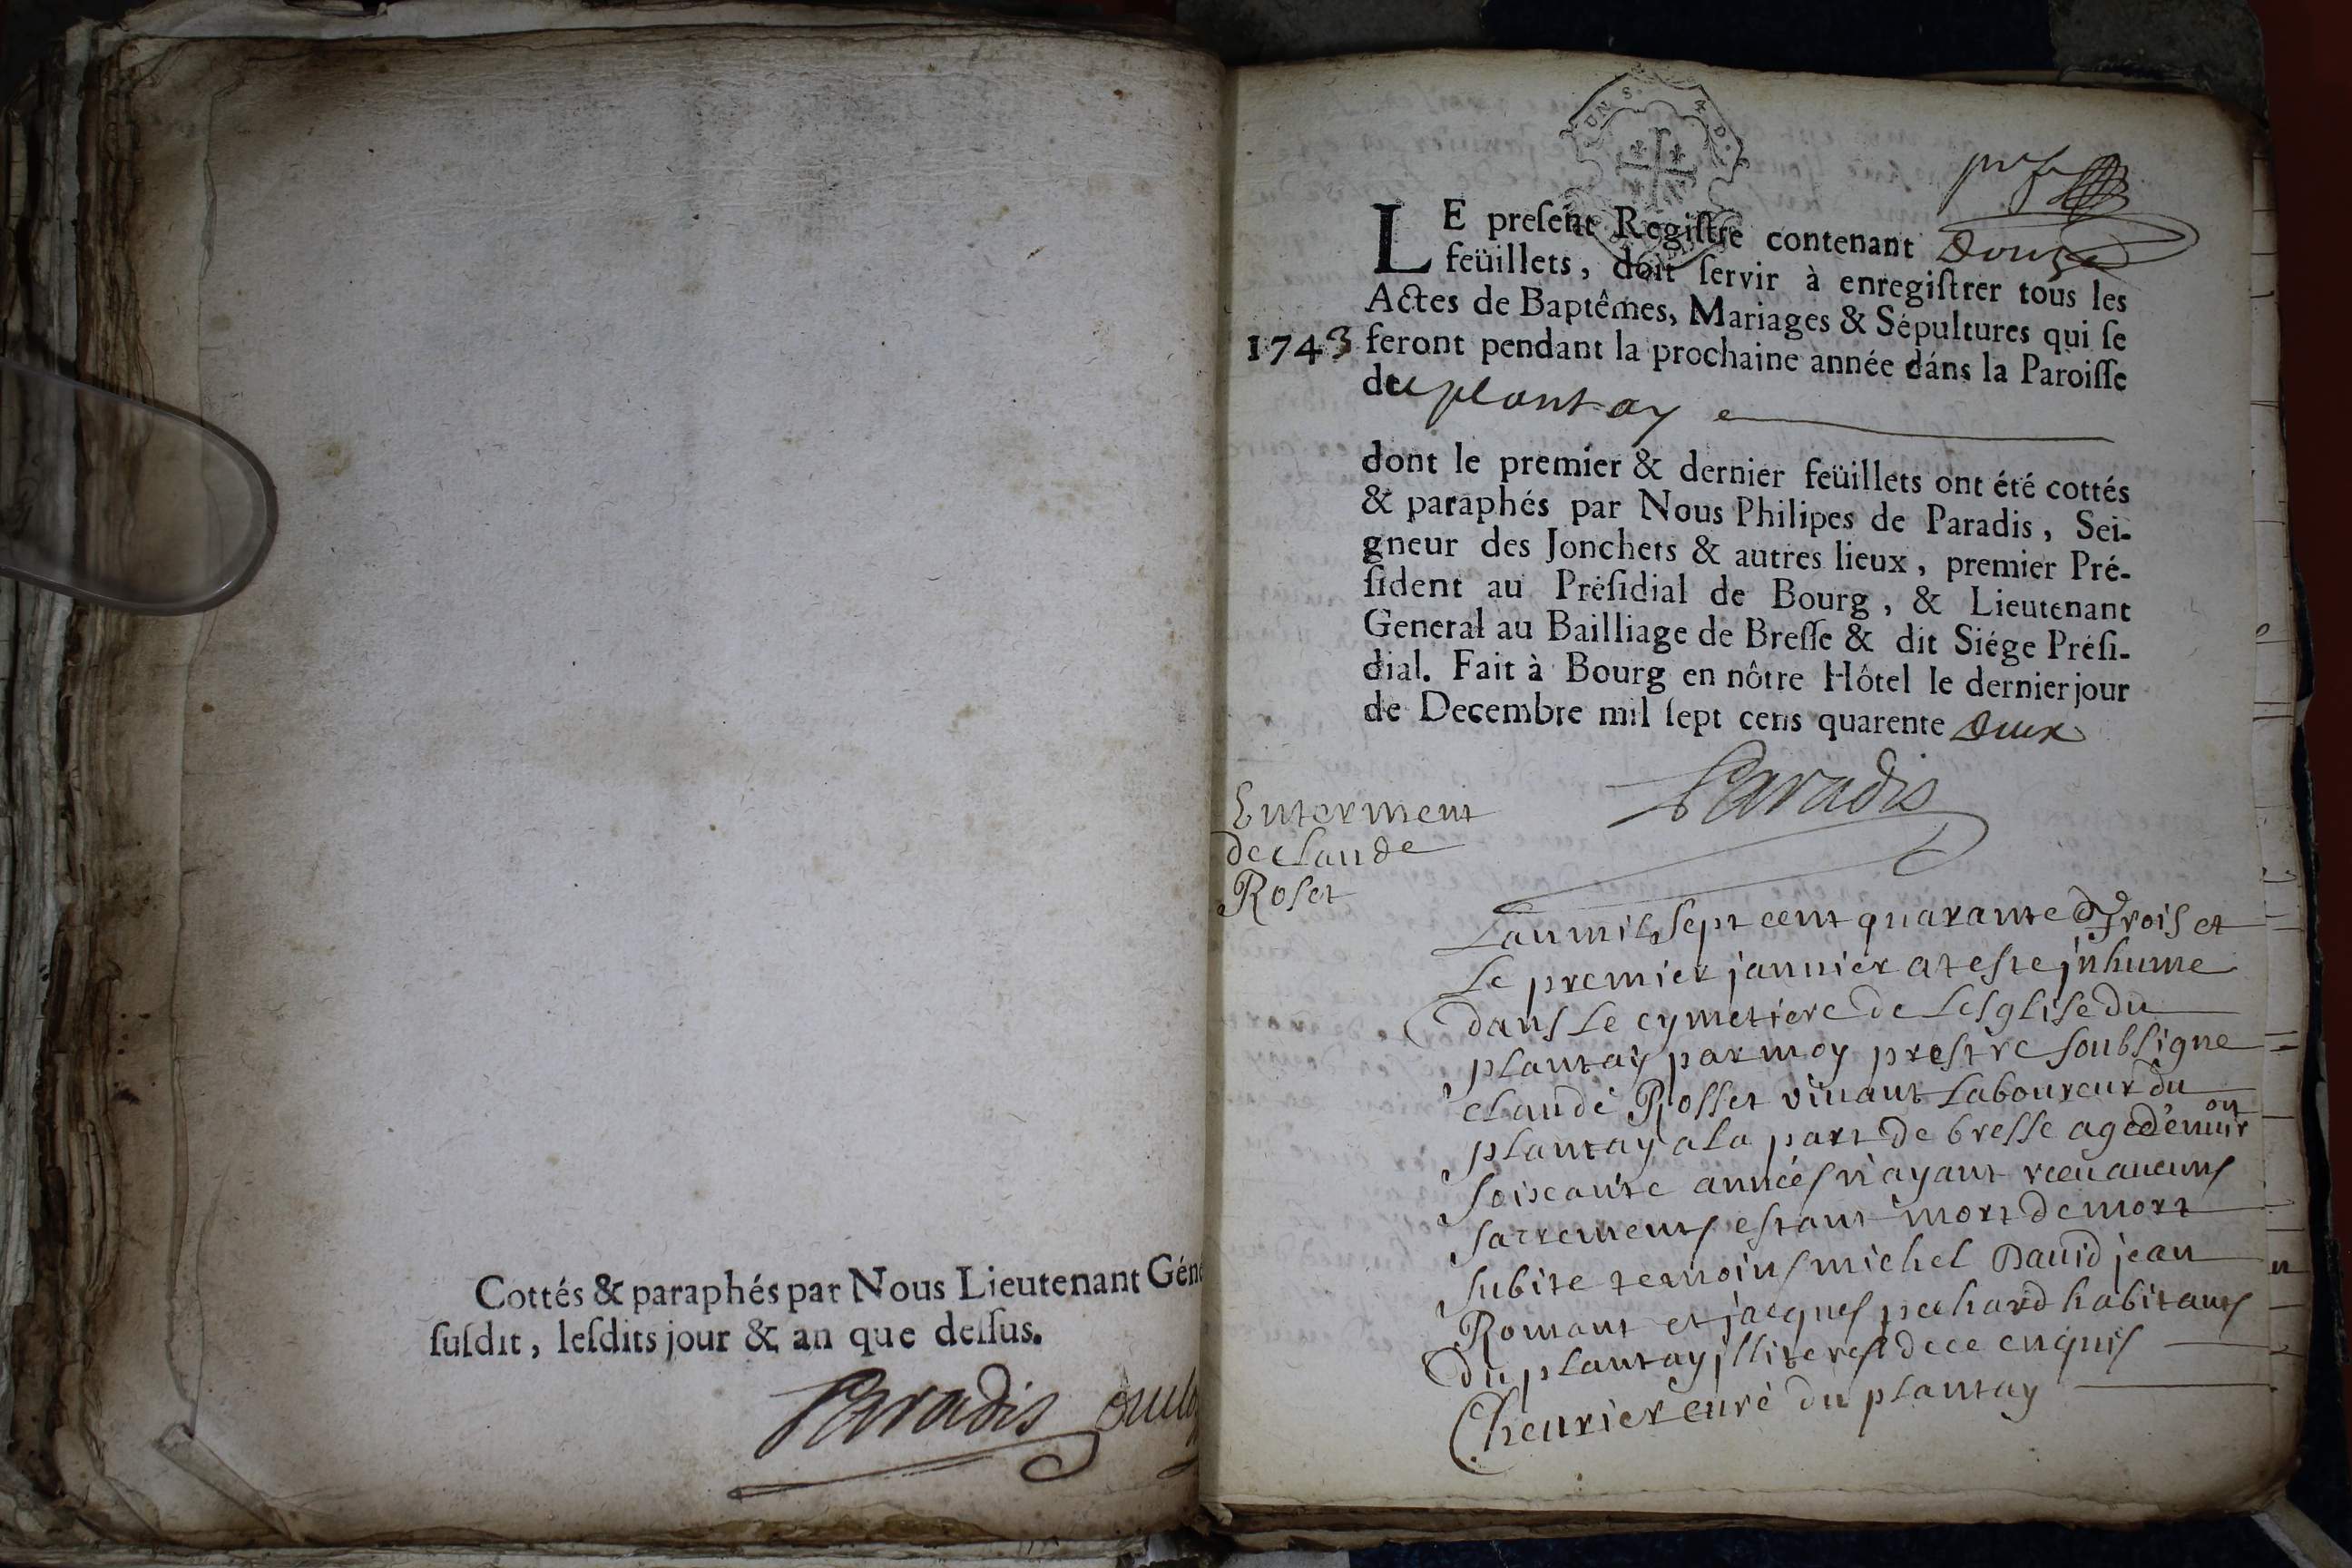 Cottés & paraphés par Nous Lieutenant Géné
ſuſdit, leſdits jour & an que deſſus.
Paradis
UN S. A D.
LE preſent Regiſtre contenant Douze
feüillets, doit ſervir à enregiſtrer tous les
Actes de Baptêmes, Mariages & Sépultures qui ſe
1743 feront pendant la prochaine année dáns la Paroiſſe
du plantay
dont le premier & dernier feüillets ont été cottés
& paraphés par Nous Philipes de Paradis, Sei-
gneur des Jonchets & autres lieux, premier Pré-
ſident au Préſidial de Bourg, & Lieutenant
General au Bailliage de Breſſe & dit Siége Préſi-
dial. Fait à Bourg en nôtre Hôtel le dernier jour
de Decembre mil ſept cens quarente Deux
Paradis
Enterment
de Claude
Roset
Lan mil Sept cent quarante Trois et
Le premier jannier at este jnhume
dans Le cymetiere de Lesglise du
plantay par moy prestre soubsigne
claude Rosset viuant Laboureur du
plantay a La part de bresse age denuiron
soixcante années n'ayant rceu aucuns
sacrements estant mort de mort
subite temoins michel Dauid jean
Romant et jacques pechard habitants
du plantay jlliteres de ce enquis
Cheurier curé du plantay